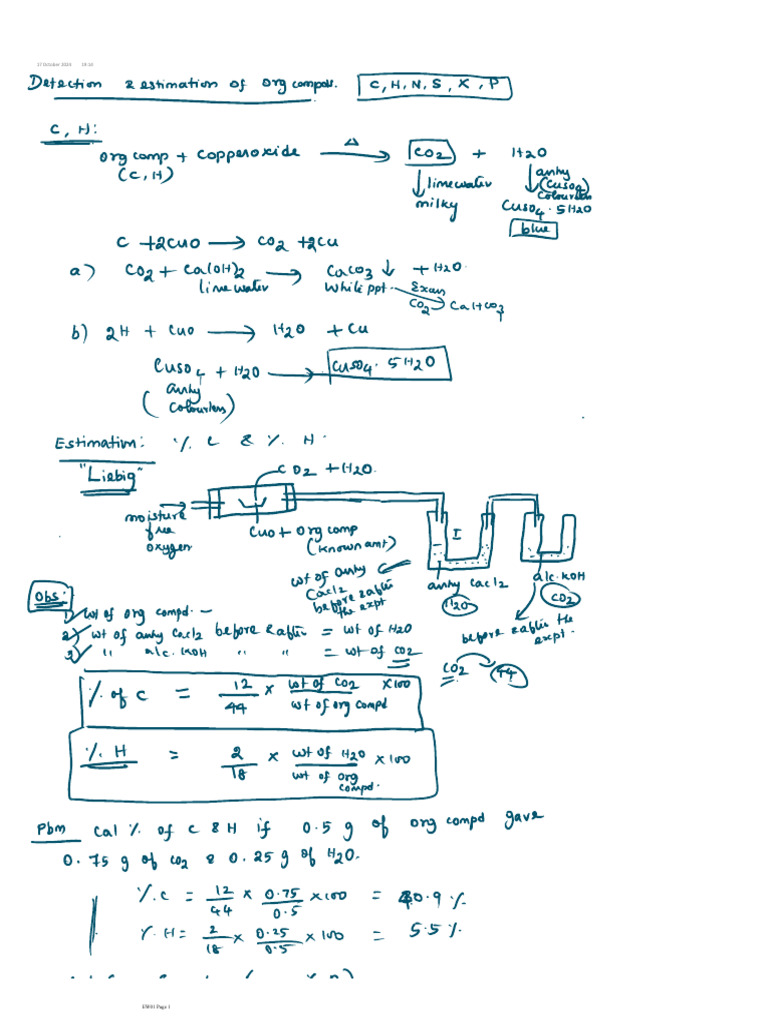 17 October 2024 19:10
Detection & estimation of org compds. C, H, N, S, X, P
C, H:
org comp + copperoxide Δ→ CO2 + H2O
(C, H)
↓ limewater ↓ anhy (CuSO4) colourless
milky CuSO4 · 5H2O
blue
C + 2CuO → CO2 + 2Cu
a) CO2 + Ca(OH)2 → CaCO3 ↓ + H2O
lime water White ppt CO2 → CaHCO3
b) 2H + CuO → H2O + Cu
CuSO4 + H2O → CuSO4 · 5H2O
(anhy colourless)
Estimation: % C & % H.
"Liebig"
CO2 + H2O.
moisture free oxygen
CuO + org comp
(known amt)
I
wt of anhy CaCl2 before & after the expt
anhy CaCl2
H2O
alc. KOH
CO2
before & after the expt.
Obs:
1) wt of org compd. -
2) wt of anhy CaCl2 before & after = wt of H2O
3) " alc. KOH " " = wt of CO2
CO2 → 44
% of C = 12/44 × wt of CO2/wt of org compd × 100
% H = 2/18 × wt of H2O/wt of org compd. × 100
Pbm Cal % of C & H if 0.5 g of org compd gave
0.75 g of CO2 & 0.25 g of H2O.
% C = 12/44 × 0.75/0.5 × 100 = 40.9 %
% H = 2/18 × 0.25/0.5 × 100 = 5.5 %